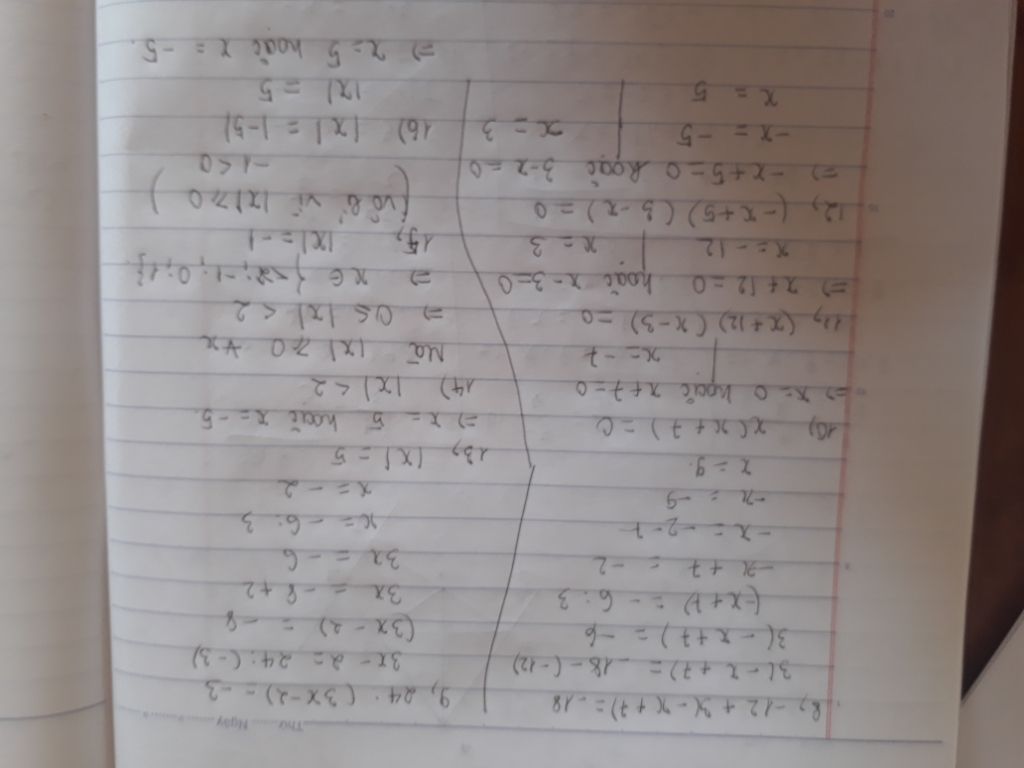 Thứ
Ngày
8, -12 + 3(-x+7) = -18
3(-x+7) = -18-(-12)
3(-x+7) = -6
(-x+7) = -6:3
-x+7 = -2
-x = -2-7
-x = -9
x = 9.
10, x(x+7) = 0
=> x=0 hoặc x+7=0
x=-7
11, (x+12)(x-3) = 0
=> x+12=0 hoặc x-3=0
x=-12 x=3
12, (-x+5)(3-x) = 0
=> -x+5=0 hoặc 3-x=0
-x = -5 x = 3
x = 5
9, 24:(3x-2) = -3
3x-2 = 24:(-3)
(3x-2) = -8
3x = -8+2
3x = -6
x = -6:3
x = -2
13, |x| = 5
=> x = 5 hoặc x = -5.
14) |x| < 2
Mà |x| ≥ 0 ∀x
=> 0 ≤ |x| < 2
=> x ∈ { -1; 0; 1}.
15, |x| = -1
(Vô lí vì |x| ≥ 0
-1 < 0 )
16) |x| = |-5|
|x| = 5
=> x = 5 hoặc x = -5.